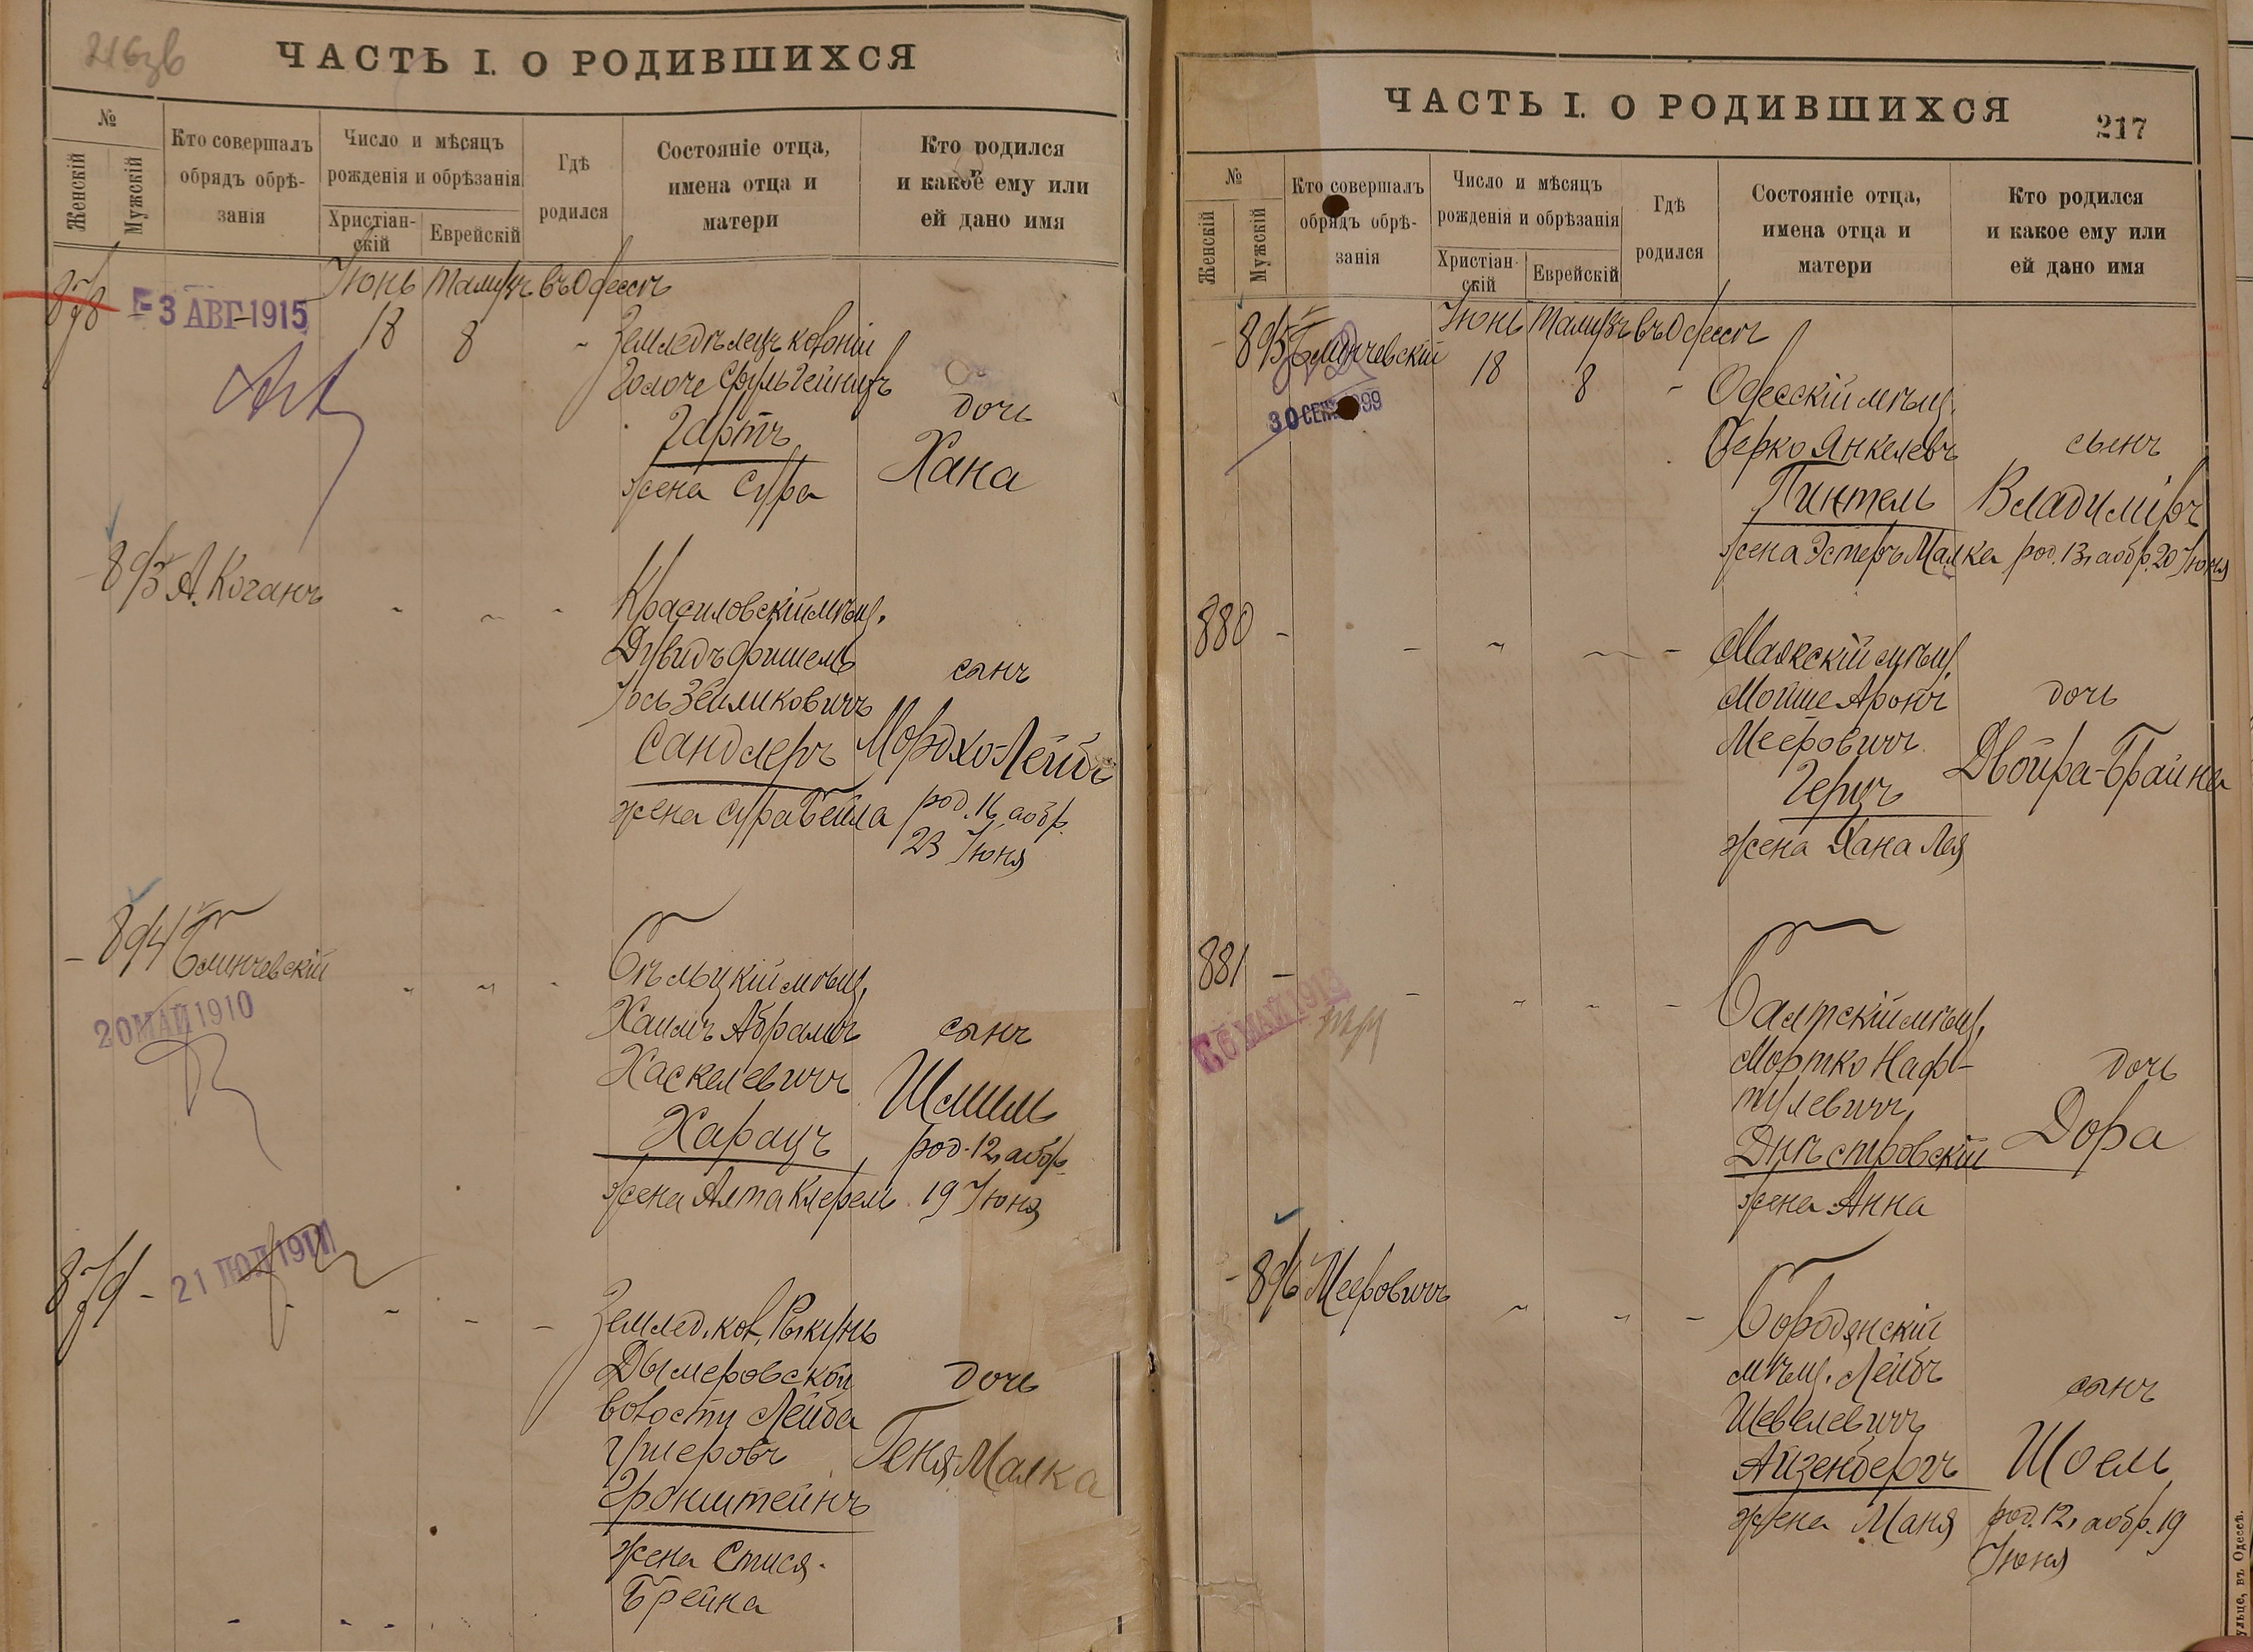 216зв
ЧАСТЬ I. О РОДИВШИХСЯ
№
Женскій
Мужскій
Кто совершалъ
обрядъ обрѣ-
занія
Число и мѣсяцъ
рожденія и обрѣзанія
Христіан-
скій
Еврейскій
Гдѣ
родился
Состояніе отца,
имена отца и
матери
Кто родился
и какое ему или
ей дано имя
Іюнь Тамузъ въ Одессѣ
878 - -3 АВГ 1915 18 8 -
Земледѣлецъ колоніи
дочь
Гартъ
жена Сура
Хана
- 893 А. Коганъ
Красиловскій мѣщ.
Дувидъ Фишель
Іось Зейликовичъ
сынъ
Сандлеръ
Мордхо-Лейбъ
жена Сура Бейла
род. 16, а обр.
23 Іюня
- 894 Блинчевскій
20 МАЙ 1910
Бѣльцкій мѣщ.
Хаимъ Абрамъ
сынъ
Хаскелевичъ
Шмиль
Харацъ
род. 12, а обр.
жена Алта Клерель
19 Іюня
879 -
21 ІЮЛ 191
Землед. кол. Рыкунь
Дымеровской
дочь
волости Лейба
Ушеровъ
Геня Малка
Гронштейнъ
жена Стися-
Брейна
ЧАСТЬ I. О РОДИВШИХСЯ
217
№
Женскій
Мужскій
Кто совершалъ
обрядъ обрѣ-
занія
Число и мѣсяцъ
рожденія и обрѣзанія
Христіан-
скій
Еврейскій
Гдѣ
родился
Состояніе отца,
имена отца и
матери
Кто родился
и какое ему или
ей дано имя
Іюнь Тамузъ въ Одессѣ
- 895 Блинчевскій 18 8 -
30 СЕН 1899
Одесскій мѣщ.
Берко Янкелевъ
сынъ
Пинтель
Владиміръ
жена Эстеръ Малка
род. 13, а обр. 20 Іюня
880 -
Маякскій мѣщ.
Мойше Аронъ
дочь
Мееровичъ
Двойра-Брайна
Герцъ
жена Хана Лея
881 -
6 МАЙ 1913
Балтскій мѣщ.
Мортко Наф-
дочь
тулевичъ
Дора
Днѣстровскій
жена Анна
- 896 Мееровичъ
Бородянскій
мѣщ. Лейбъ
сынъ
Шевелевичъ
Айзенбергъ
Шоель
жена Маня
род. 12, а обр. 19
Іюня
ульце, въ Одессѣ.